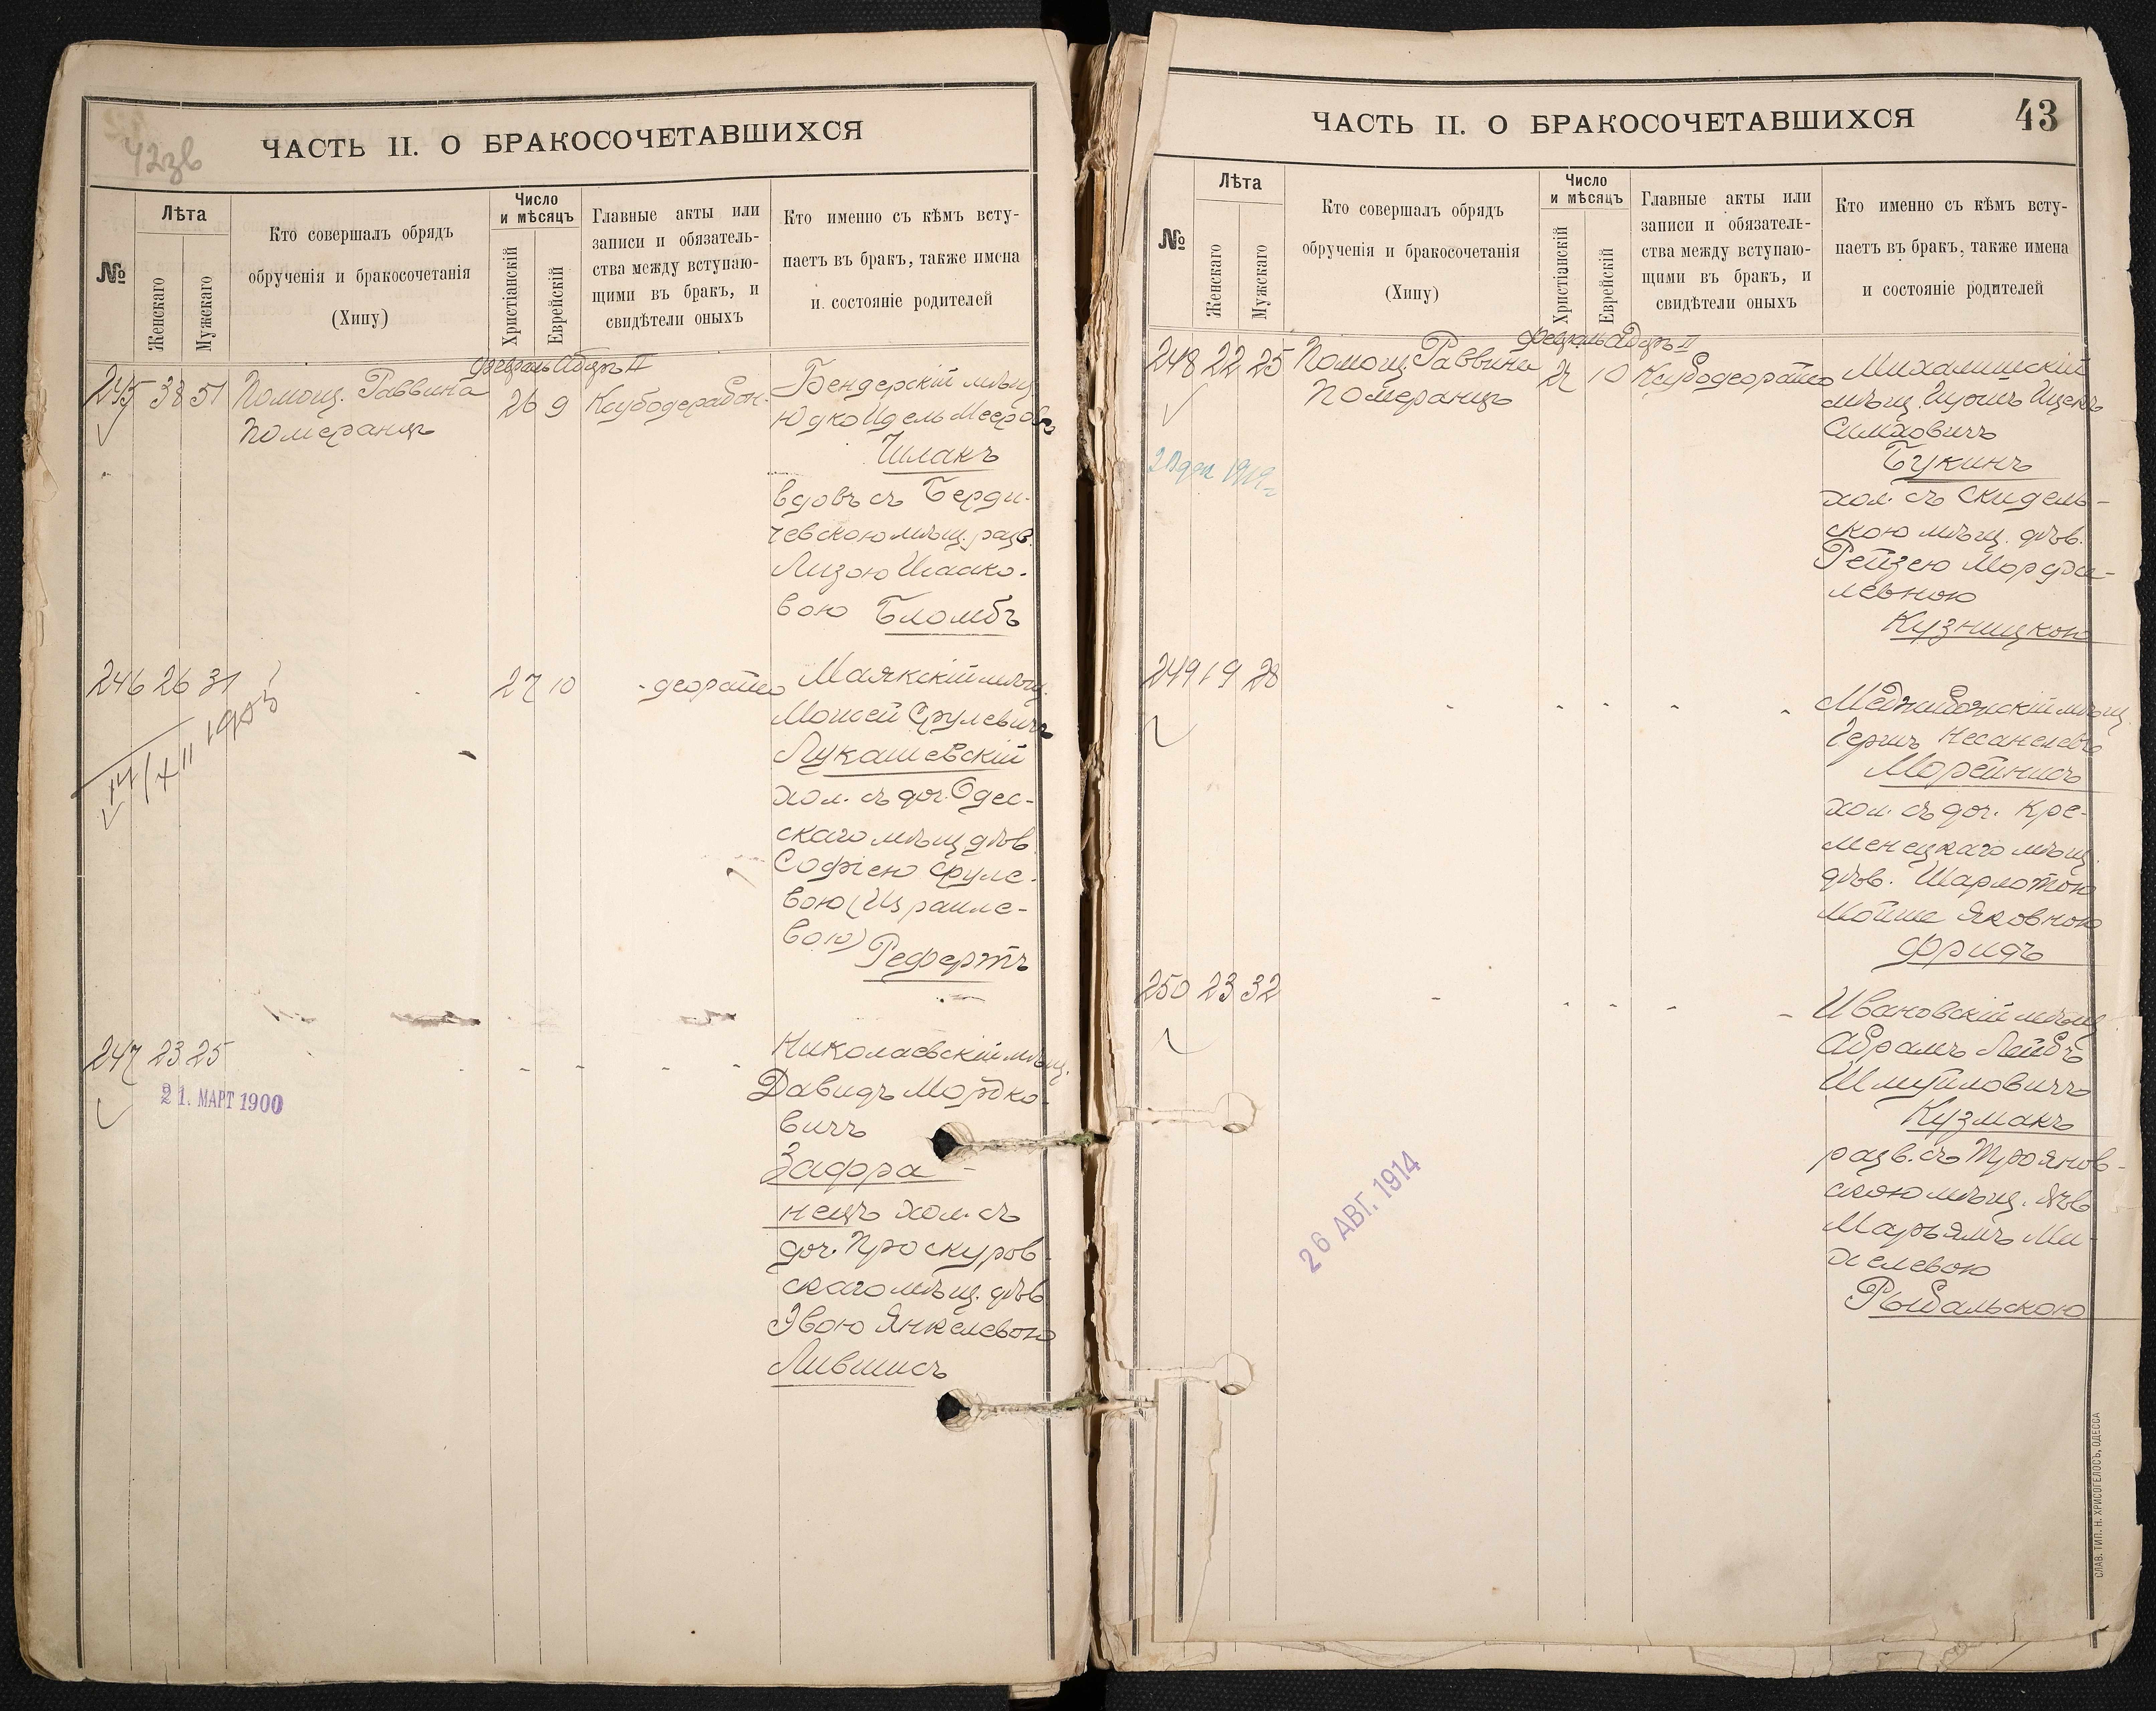 42зв
ЧАСТЬ II. О БРАКОСОЧЕТАВШИХСЯ
№
Лѣта
Женскаго
Мужскаго
Кто совершалъ обрядъ
обрученія и бракосочетанія
(Хипу)
Число
и мѣсяцъ
Христіанскій
Еврейскій
Главные акты или
записи и обязатель-
ства между вступаю-
щими въ бракъ, и
свидѣтели оныхъ
Кто именно съ кѣмъ всту-
паетъ въ бракъ, также имена
и состояніе родителей
Февраль Адаръ II
245 38 51 Помощ. Раввина
Померанцъ
26 9 Ксубодерабон.
Бендерскій мѣщ.
Юдко Идель Мееровъ
Чплакъ
вдовъ съ Берди-
чевскою мѣщ. разв.
Лизою Исаако-
вою Бломбъ
246 26 31
14/XII 1905
27 10 -деорайсо
Маякскій мѣщ.
Мошей Срулевичъ
Лукашевскій
хол. съ доч. Одес-
скаго мѣщ. дѣв.
Софіею Сруле-
вою (Израиле-
вою)
Рефертъ
247 23 25
21. МАРТ 1900
Николаевскій мѣщ.
Давидъ Мордко-
вичъ
Зафра-
нецъ хол. съ
доч. Проскуров-
скаго мѣщ. дѣв.
Эвою Янкелевою
Лившисъ
ЧАСТЬ II. О БРАКОСОЧЕТАВШИХСЯ
43
№
Лѣта
Женскаго
Мужскаго
Кто совершалъ обрядъ
обрученія и бракосочетанія
(Хипу)
Число
и мѣсяцъ
Христіанскій
Еврейскій
Главные акты или
записи и обязатель-
ства между вступаю-
щими въ бракъ, и
свидѣтели оныхъ
Кто именно съ кѣмъ всту-
паетъ въ бракъ, также имена
и состояніе родителей
Февраль Адаръ II
248 22 25 Помощ. Раввина
Померанцъ
27 10 Ксубодеорайсо
Михалишскій
мѣщ. Ицекъ
Симховичъ
Букинъ
хол. съ Скидель-
скою мѣщ. дѣв.
Рейзею Мордхе-
левною
Кузницкою
1919
249 19 28
Меджибожскій мѣщ.
Гершъ Несанелевъ
Морейнисъ
хол. съ доч. Кре-
менецкаго мѣщ.
дѣв. Шарлотою
Мойше Яковною
Фридъ
250 23 32
Ивановскій мѣщ.
Абрамъ Лейбъ
Шмуйловичъ
Кузмакъ
разв. съ Трояновс-
скою мѣщ. дѣв
Марьямъ Ми-
хелевою
Рыбальскою
26 АВГ. 1914
СЛАВ. ТИП. Н. ХРИСОГЕЛОСЪ, ОДЕССА